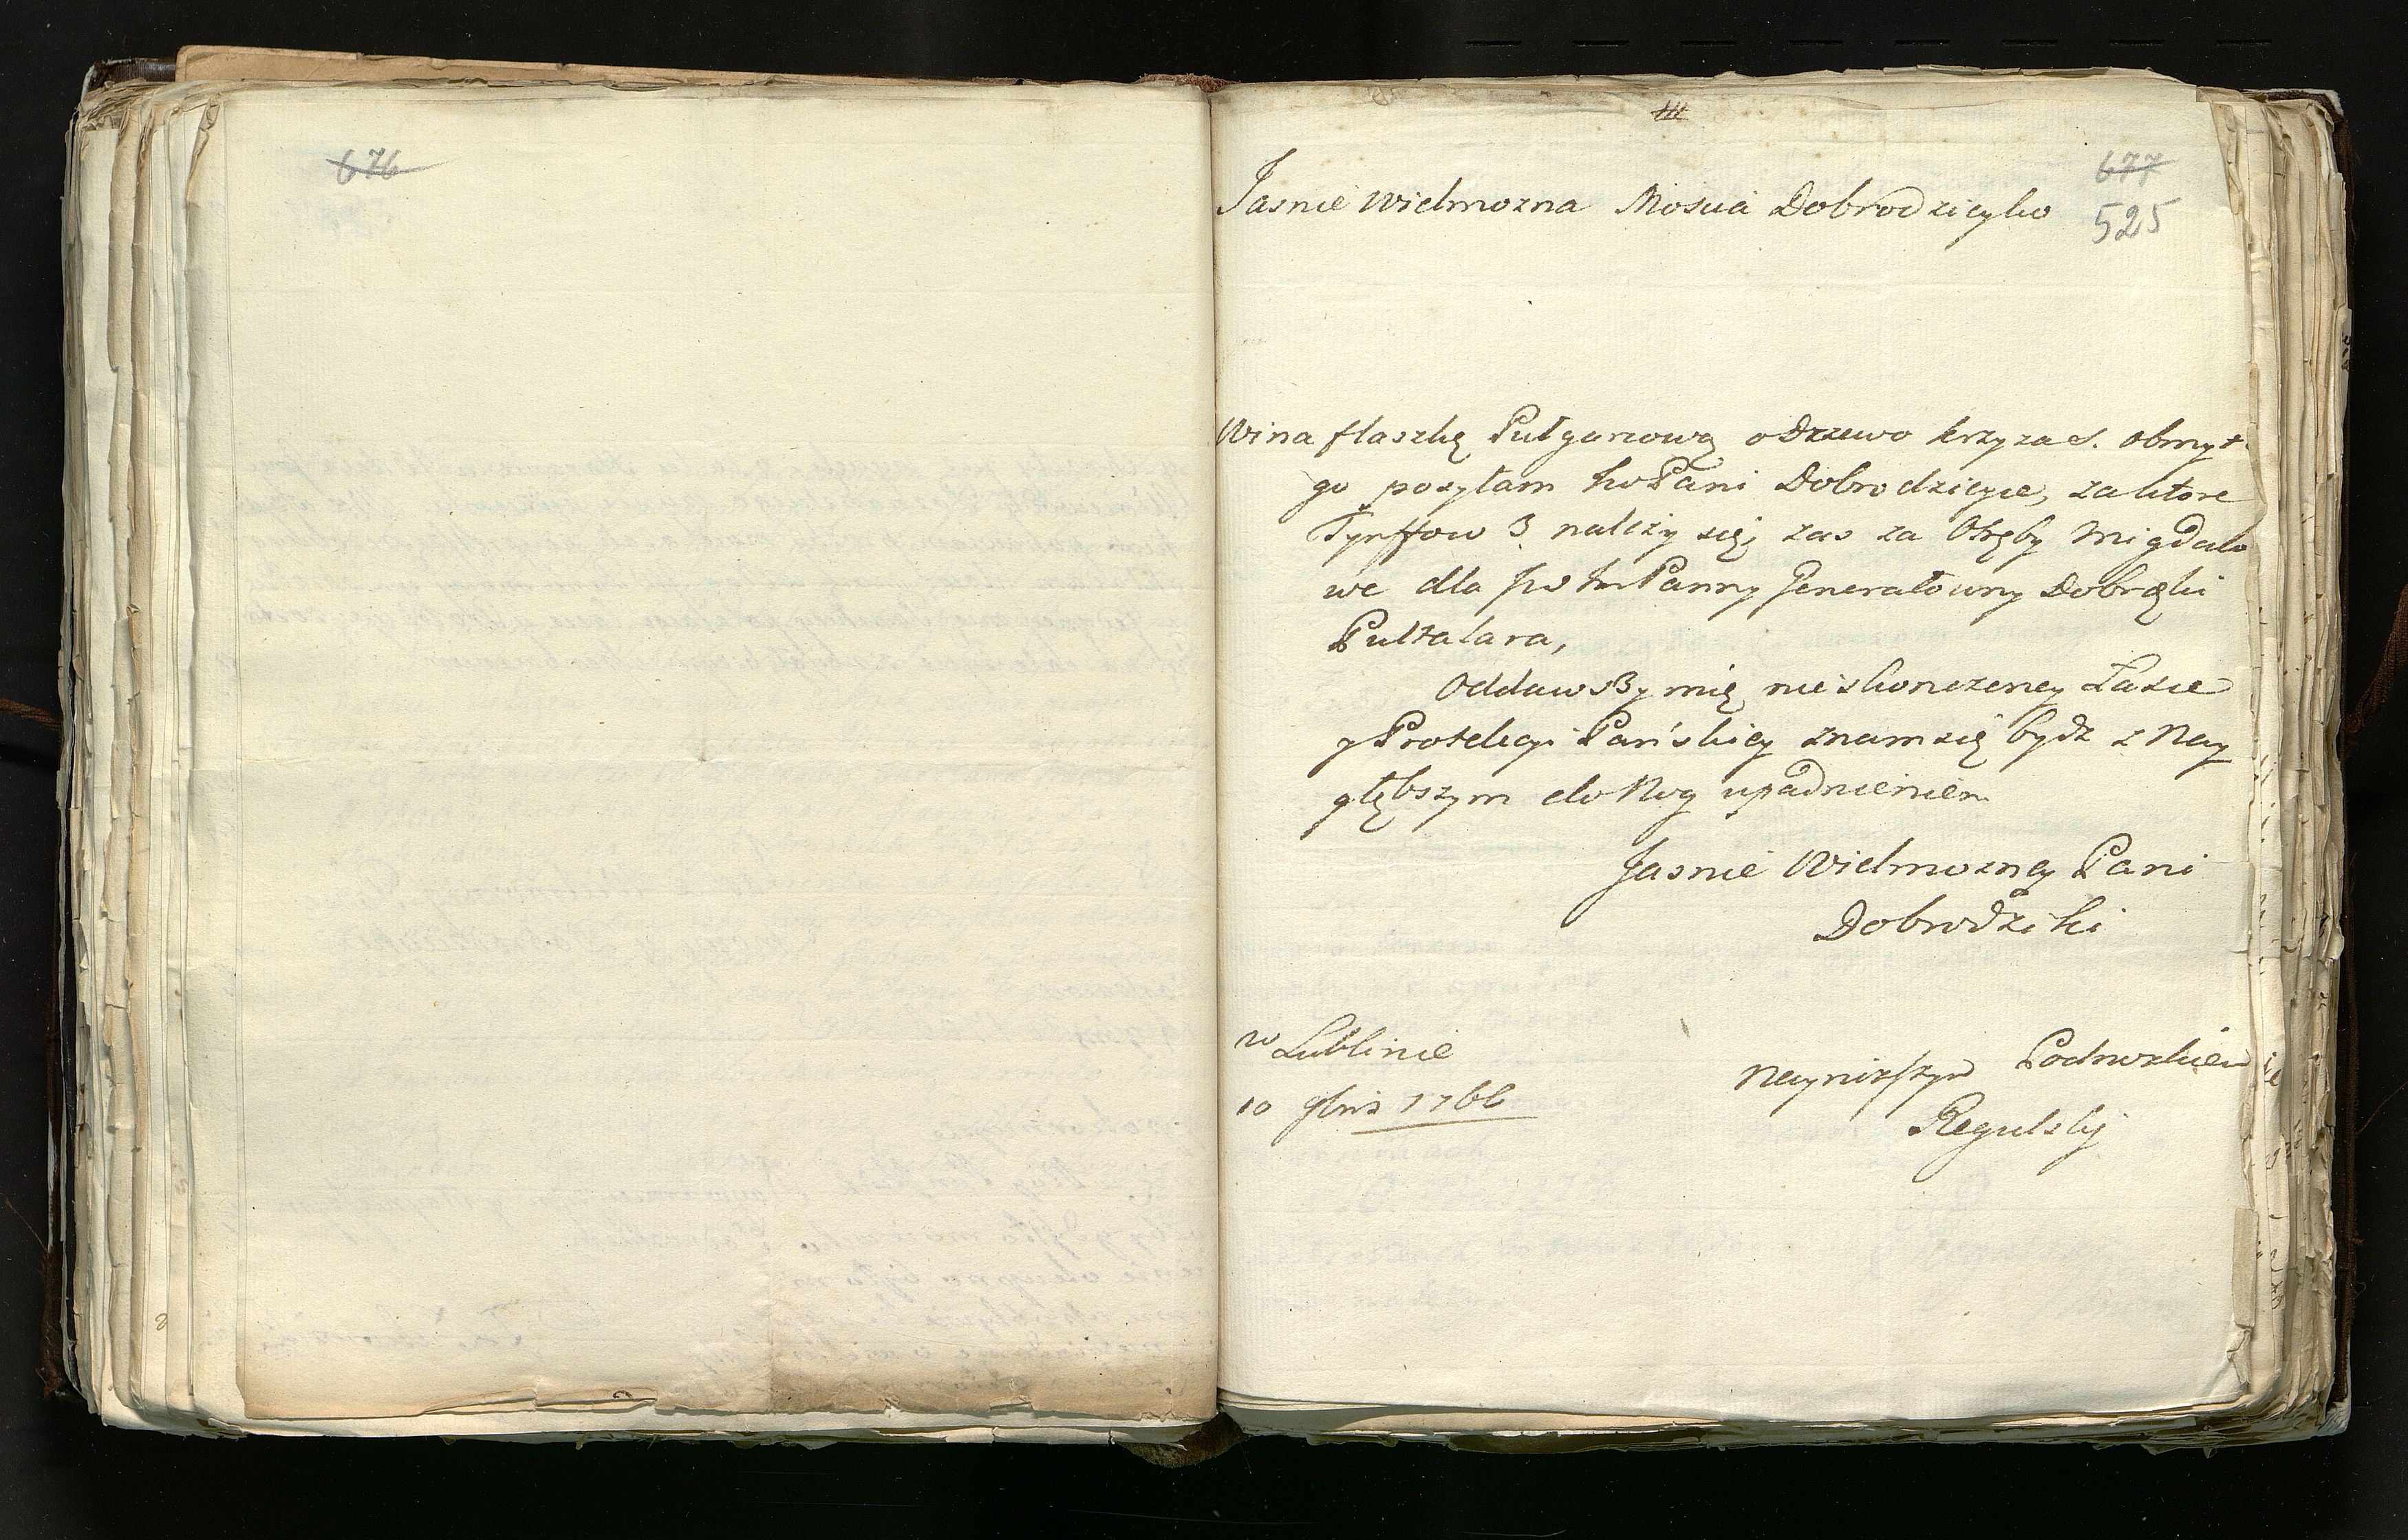 676
677
525
Jasnie Wielmozna Moscia Dobrodzieyko
Wina flaszkę Pułgarcową o Drzewo krzyza S. obmyte
go posyłam JwPani Dobrodzieyce, za ktore
Tynffow 3 nalezy się, zas za Otręby Migdało
we dla Jw Panny Generałowny Dobrodki
Pultalara,
Oddawszy mię nieskonczeney Łasce
y Protekcyi Pańskiey znam się bydz z Nay
głębszym do Nog upadnieniem
Jasnie Wielmozney Pani
Dobrodziki
w Lublinie
10 9bris 1766
Naynizszym Podnozkiem
Regulsky